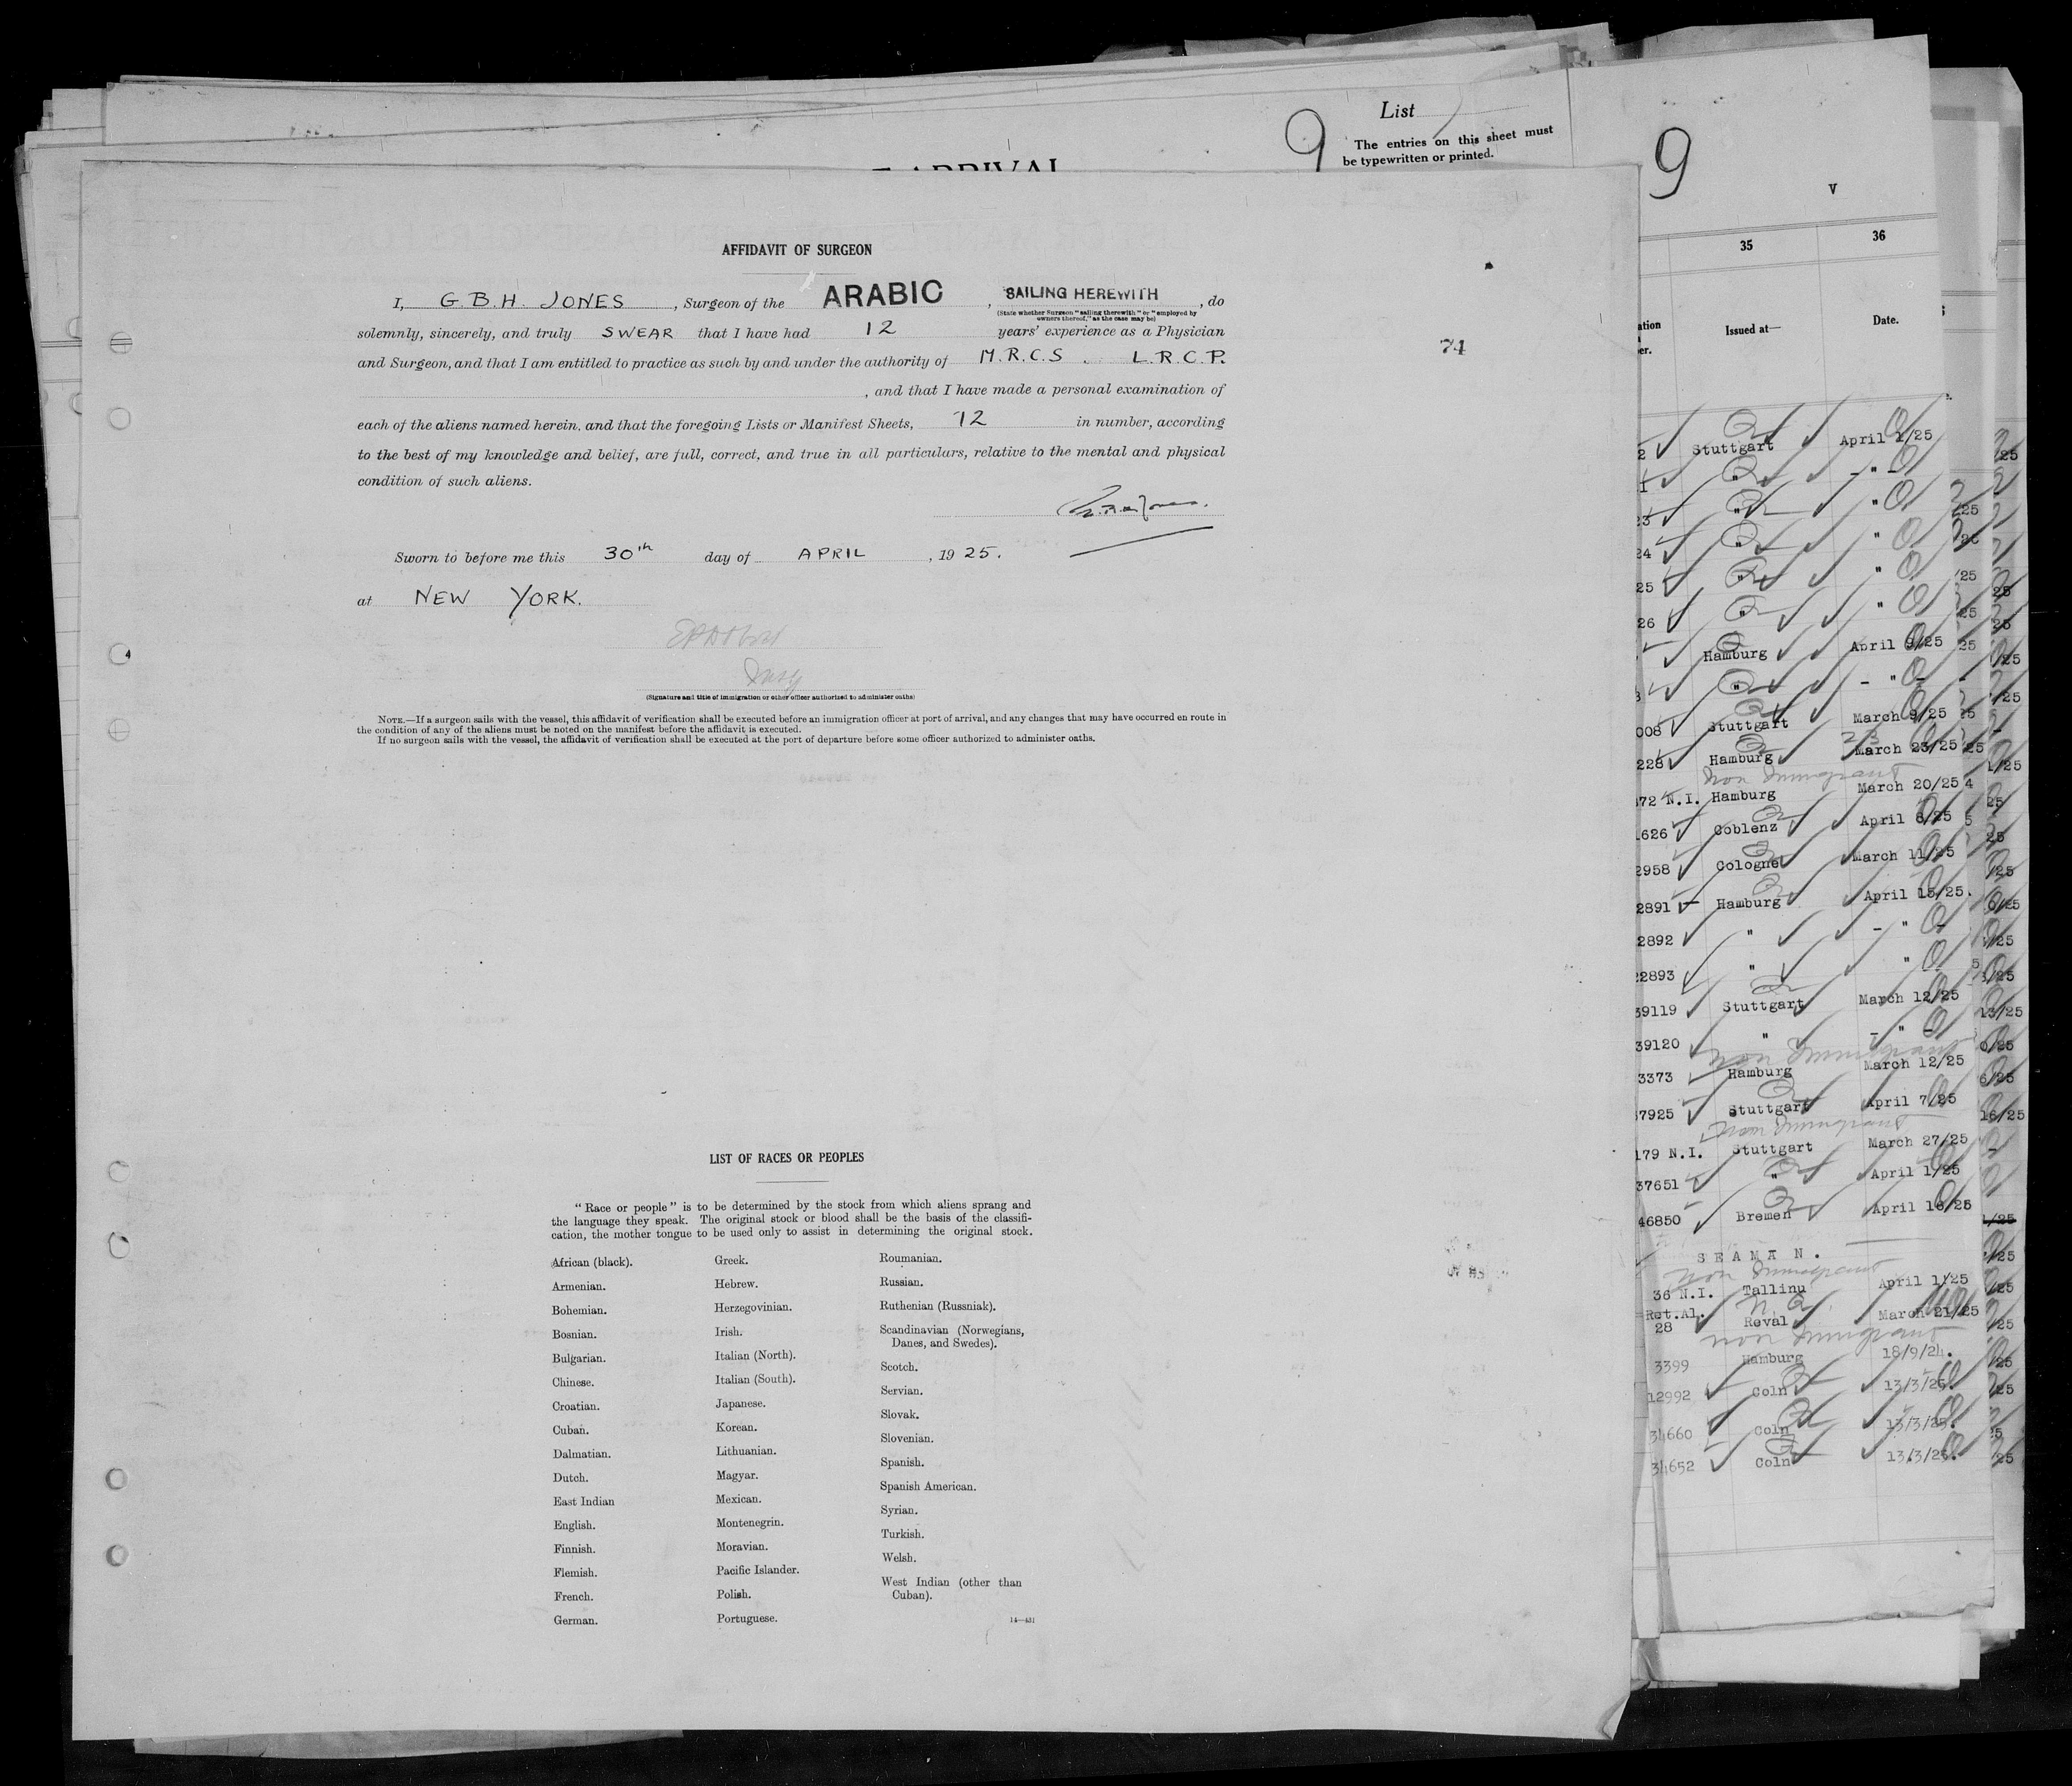 List
9
The entries on this sheet must
be typewritten or printed.
ARRIVAL
AFFIDAVIT OF SURGEON
I, G.B.H. JONES, Surgeon of the ARABIC, SAILING HEREWITH, do
(State whether Surgeon "sailing therewith" or "employed by
owners thereof," as the case may be)
solemnly, sincerely, and truly SWEAR that I have had 12 years' experience as a Physician
and Surgeon, and that I am entitled to practice as such by and under the authority of M.R.C.S. L.R.C.P.
, and that I have made a personal examination of
each of the aliens named herein, and that the foregoing Lists or Manifest Sheets, 12 in number, according
to the best of my knowledge and belief, are full, correct, and true in all particulars, relative to the mental and physical
condition of such aliens.
74
Sworn to before me this 30th day of APRIL, 1925.
at NEW YORK.
(Signature and title of immigration or other officer authorized to administer oaths)
NOTE.—If a surgeon sails with the vessel, this affidavit of verification shall be executed before an immigration officer at port of arrival, and any changes that may have occurred en route in
the condition of any of the aliens must be noted on the manifest before the affidavit is executed.
If no surgeon sails with the vessel, the affidavit of verification shall be executed at the port of departure before some officer authorized to administer oaths.
LIST OF RACES OR PEOPLES
"Race or people" is to be determined by the stock from which aliens sprang and
the language they speak. The original stock or blood shall be the basis of the classifi-
cation, the mother tongue to be used only to assist in determining the original stock.
African (black).
Armenian.
Bohemian.
Bosnian.
Bulgarian.
Chinese.
Croatian.
Cuban.
Dalmatian.
Dutch.
East Indian
English.
Finnish.
Flemish.
French.
German.
Greek.
Hebrew.
Herzegovinian.
Irish.
Italian (North).
Italian (South).
Japanese.
Korean.
Lithuanian.
Magyar.
Mexican.
Montenegrin.
Moravian.
Pacific Islander.
Polish.
Portuguese.
Roumanian.
Russian.
Ruthenian (Russniak).
Scandinavian (Norwegians,
Danes, and Swedes).
Scotch.
Servian.
Slovak.
Slovenian.
Spanish.
Spanish American.
Syrian.
Turkish.
Welsh.
West Indian (other than
Cuban).
14—431
9
V
35 36
Issued at— Date.
2 Stuttgart April 1/25
1 " - " -
23 " "
24 " "
25 " "
26 " "
Hamburg April 9/25
" - " -
008 Stuttgart March 9/25
228 Hamburg March 23/25
Non Immigrant
72 N.I. Hamburg March 20/25
1626 Coblenz April 6/25
2958 Cologne March 11/25
2891 Hamburg April 15/25.
2892 " - " -
22893 " "
39119 Stuttgart March 12/25
39120 " - " -
Non Immigrant
3373 Hamburg March 12/25
7925 Stuttgart April 7/25
Non Immigrant
179 N.I. Stuttgart March 27/25
37651 " April 1/25
46850 Bremen April 16/25
SEAMAN.
Non Immigrant
36 N.I. Tallinu April 1/25
Ret.Al.
28 Reval March 21/25
Non Immigrant
3399 Hamburg 18/9/24.
12992 Coln 13/3/25.
34660 Coln 13/3/25.
34652 Coln 13/3/25.